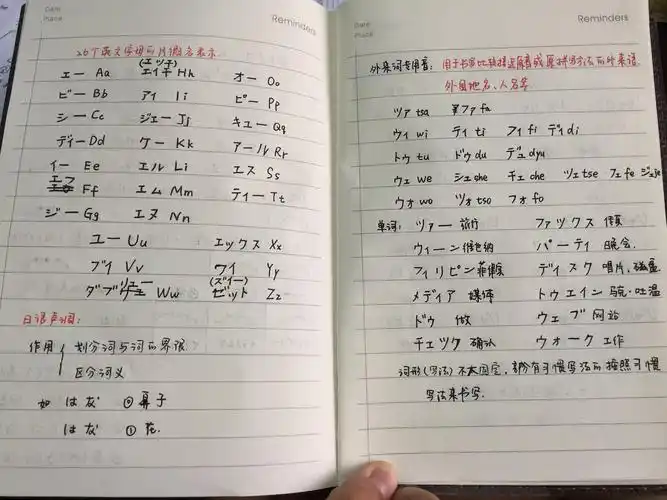 Date
Place
Reminders
26个英文字母的片假名表示
(エッチ)
エー Aa エイチ Hh オー Oo
ビー Bb アイ Ii ピー Pp
シー Cc ジェー Jj キュー Qq
ディー Dd ケー Kk アール Rr
イー Ee エル Ll エス Ss
エフ Ff エム Mm ティー Tt
ジー Gg エヌ Nn
ユー Uu エックス Xx
ブイ Vv ワイ Yy
(ズィー)
ダブリュー Ww ゼット Zz
日语声调:
作用 划分词与词的界限
区分词义
如 はな ⓪ 鼻子
はな ① 花.
Date
Place
Reminders
外来词专用音: 用于书写比较接近原音或原拼写方法的外来语
外国地名、人名等
ツァ tsa ファ fa
ウィ wi ティ ti フィ fi ディ di
トゥ tu ドゥ du デュ dyu
ウェ we シェ she チェ che ツェ tse フェ fe ジェ je
ウォ wo ツォ tso フォ fo
单词: ツァー 旅行 ファックス 传真
ウィーン 维也纳 パーティ 晚会.
フィリピン 菲律宾 ディスク 唱片, 磁盘
メディア 媒体 トゥエイン 马克·吐温
ドゥ 做 ウェブ 网站
チェック 确认 ウォーク 工作
词形(写法)不太固定, 都有习惯写法的按照习惯
写法来书写.